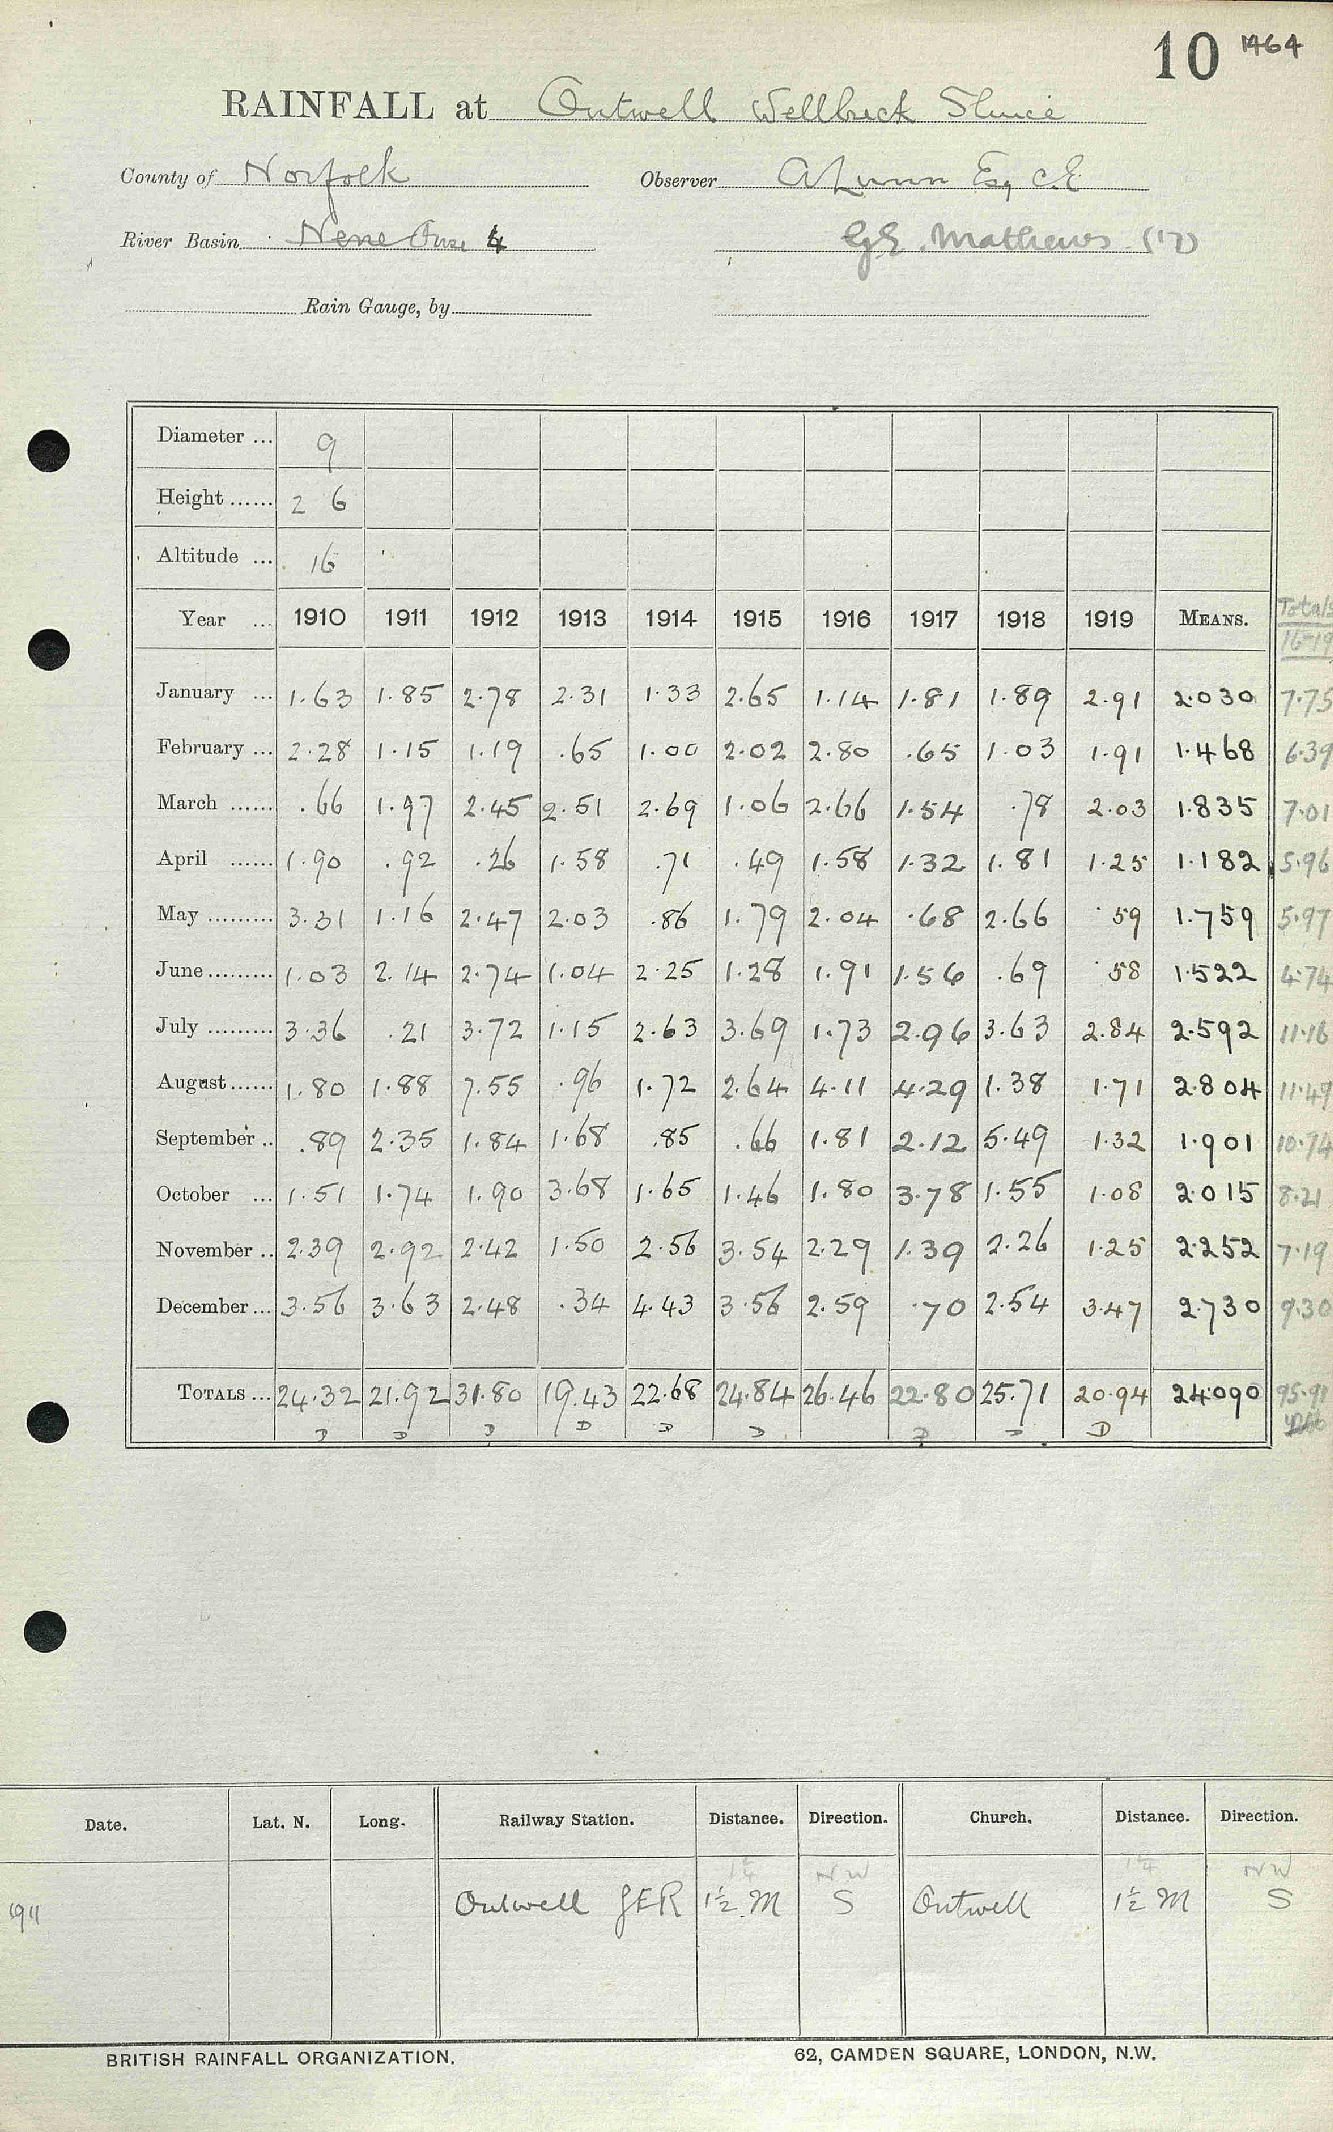 10 1464
RAINFALL at Outwell Wellbeck Sluice
County of Norfolk Observer A Lunn Esq C.E
River Basin Nene Ouse 4 G E. Mathews (17)
Rain Gauge, by
Diameter ... 9
Height ...... 2 6
Altitude ... 16
Year ... 1910 1911 1912 1913 1914 1915 1916 1917 1918 1919 MEANS. Totals
16-19
January ... 1.63 1.85 2.78 2.31 1.33 2.65 1.14 1.81 1.89 2.91 2.030 7.75
February ... 2.28 1.15 1.19 .65 1.00 2.02 2.80 .65 1.03 1.91 1.468 6.39
March ...... .66 1.97 2.45 2.51 2.69 1.06 2.66 1.54 .78 2.03 1.835 7.01
April ...... 1.90 .92 .26 1.58 .71 .49 1.58 1.32 1.81 1.25 1.182 5.96
May ......... 3.31 1.16 2.47 2.03 .86 1.79 2.04 .68 2.66 .59 1.759 5.97
June ......... 1.03 2.14 2.74 1.04 2.25 1.28 1.91 1.56 .69 .58 1.522 4.74
July ......... 3.36 .21 3.72 1.15 2.63 3.69 1.73 2.96 3.63 2.84 2.592 11.16
August ...... 1.80 1.88 7.55 .96 1.72 2.64 4.11 4.29 1.38 1.71 2.804 11.49
September .. .89 2.35 1.84 1.68 .85 .66 1.81 2.12 5.49 1.32 1.901 10.74
October ... 1.51 1.74 1.90 3.68 1.65 1.46 1.80 3.78 1.55 1.08 2.015 8.21
November .. 2.39 2.92 2.42 1.50 2.56 3.54 2.29 1.39 2.26 1.25 2.252 7.19
December ... 3.56 3.63 2.48 .34 4.43 3.56 2.59 .70 2.54 3.47 2.730 9.30
TOTALS ... 24.32 21.92 31.80 19.43 22.68 24.84 26.46 22.80 25.71 20.94 24.090 95.91
D D D D D D D D D
Date. Lat. N. Long. Railway Station. Distance. Direction. Church. Distance. Direction.
1¼ NW 1¼ NW
1911 Outwell GER 1½ M S Outwell 1½ M S
BRITISH RAINFALL ORGANIZATION. 62, CAMDEN SQUARE, LONDON, N.W.